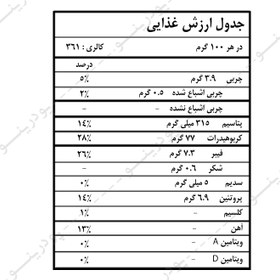 جدول ارزش غذایی
در هر ۱۰۰ گرم کالری : ۳۶۱
درصد
چربی ۳.۹ گرم ۵٪
چربی اشباع شده ۰.۵ گرم ۲٪
چربی اشباع نشده - -
پتاسیم ۳۱۵ میلی گرم ۱۴٪
کربوهیدرات ۷۷ گرم ۲۸٪
فیبر ۷.۳ گرم ۲۶٪
شکر ۰.۶ گرم -
سدیم ۵ میلی گرم ۰٪
پروتئین ۶.۹ گرم ۱۴٪
کلسیم - ۱٪
آهن - ۱۳٪
ویتامین A - ۰٪
ویتامین D - ۰٪